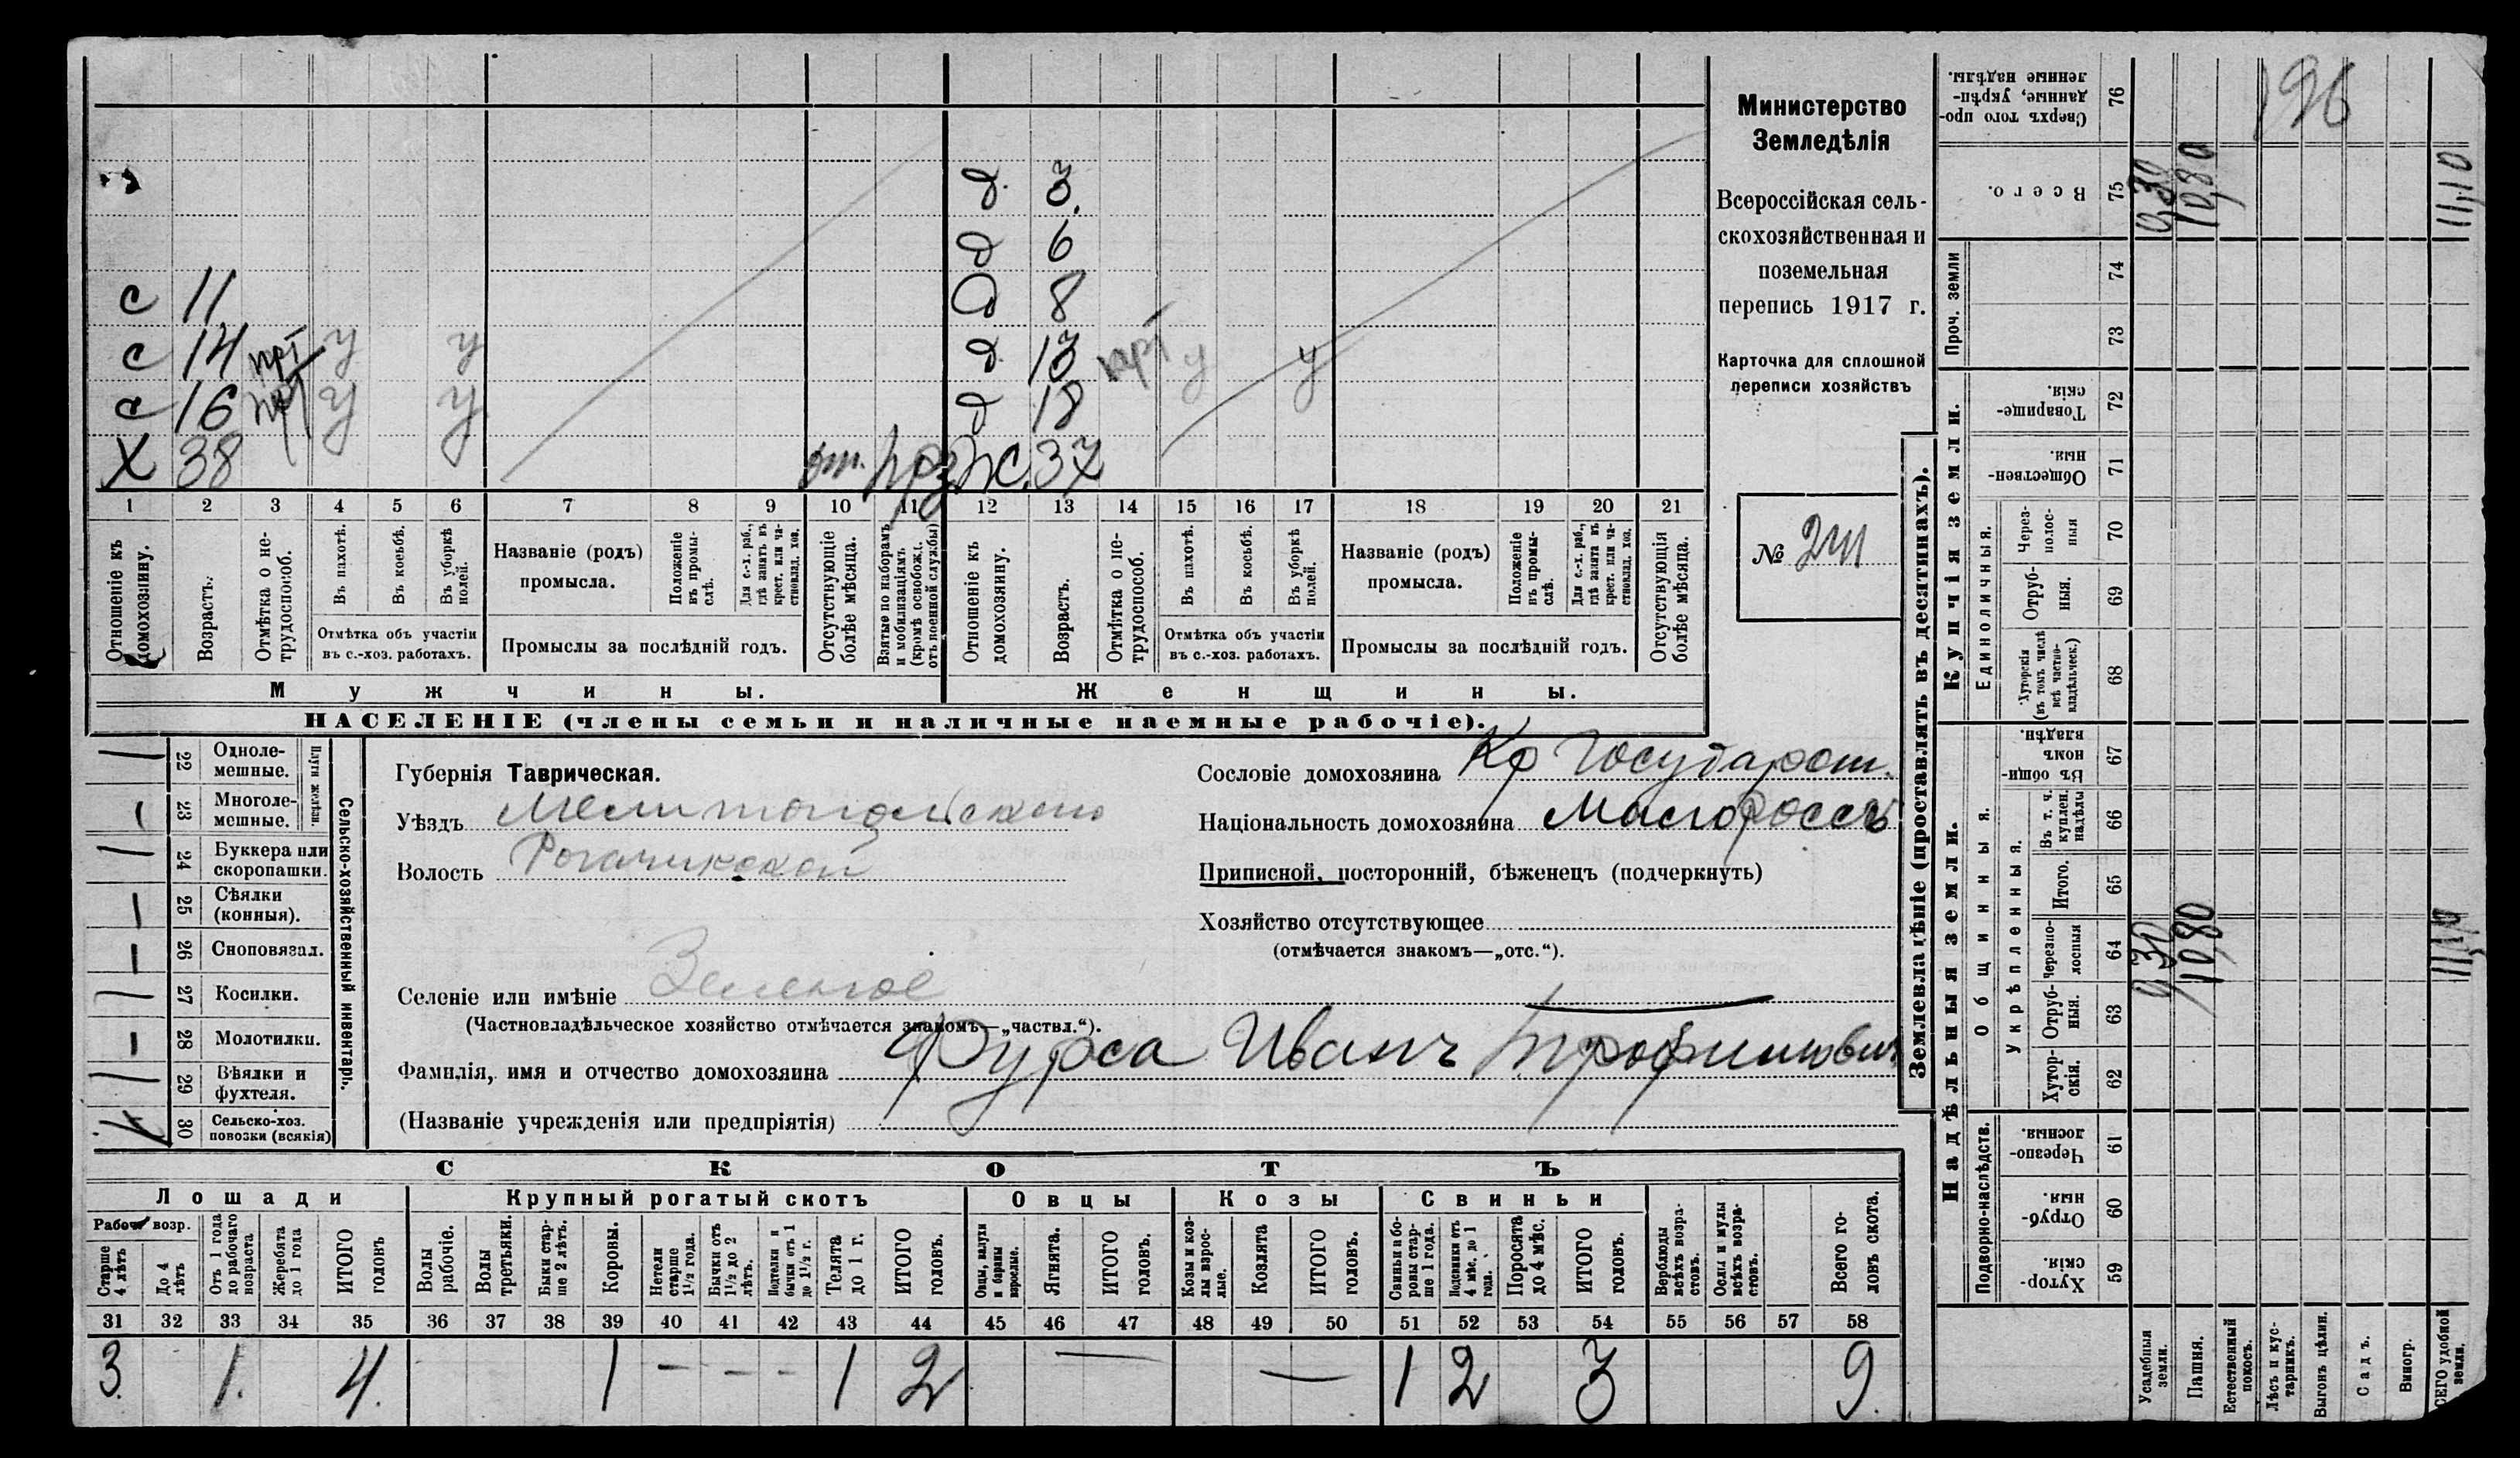 Министерство
Земледѣлія
Всероссійская сель-
скохозяйственная и
поземельная
перепись 1917 г.
Карточка для сплошной
переписи хозяйствъ
№ 241
д. 3.
д 6
с 11 д 8
с 14 нрт у у д. 13 нрт у у
с 16 нрт у у д 18
Х 38 от. Ж. 37
1 2 3 4 5 6 7 8 9 10 11 12 13 14 15 16 17 18 19 20 21
Отношеніе къ домохозяину.
Возрастъ.
Отмѣтка о не-трудоспособ.
Въ пахотѣ.
Въ косьбѣ.
Въ уборкѣ полей.
Отмѣтка объ участіи
въ с.-хоз. работахъ.
Названіе (родъ)
промысла.
Положеніе въ промы-слѣ.
Для с.-х. раб., гдѣ занятъ въ крест. или ча-стновлад. хоз.
Промыслы за послѣдній годъ.
Отсутствующіе болѣе мѣсяца.
Взятые по наборамъ и мобилизаціямъ (кромѣ освобожд. отъ военной службы)
Отношеніе къ домохозяину.
Возрастъ.
Отмѣтка о не-трудоспособ.
Въ пахотѣ.
Въ косьбѣ.
Въ уборкѣ полей.
Отмѣтка объ участіи
въ с.-хоз. работахъ.
Названіе (родъ)
промысла.
Положеніе въ промы-слѣ.
Для с.-х. раб., гдѣ занята въ крест. или ча-стновлад. хоз.
Промыслы за послѣдній годъ.
Отсутствующія болѣе мѣсяца.
Мужчины. Женщины.
НАСЕЛЕНІЕ (члены семьи и наличные наемные рабочіе).
Сельско-хозяйственный инвентарь.
Плуги желѣзн.
22 Одноле-мешные.
23 Многоле-мешные.
24 Буккера или скоропашки.
25 Сѣялки (конныя).
26 Сноповязал.
27 Косилки.
28 Молотилки.
29 Вѣялки и фухтеля.
30 Сельско-хоз. повозки (всякія)
Губернія Таврическая.
Уѣздъ Мелитопольскаго
Волость Рогачикской
Селеніе или имѣніе Зеленое
(Частновладѣльческое хозяйство отмѣчается знакомъ—„частвл.“).
Сословіе домохозяина Кр Государст.
Національность домохозяина Малороссъ
Приписной, посторонній, бѣженецъ (подчеркнуть)
Хозяйство отсутствующее
(отмѣчается знакомъ—„отс.“).
Фамилія, имя и отчество домохозяина Фурса Иванъ Трофимович
(Названіе учрежденія или предпріятія)
СКОТЪ
Лошади Крупный рогатый скотъ Овцы Козы Свиньи
Рабоч. возр.
Старше 4 лѣтъ
До 4 лѣтъ
Отъ 1 года до рабочаго возраста
Жеребята до 1 года
ИТОГО головъ
Волы рабочіе.
Волы третьяки.
Быки стар-ше 2 лѣтъ.
Коровы.
Нетели старше 1½ года.
Бычки отъ 1½ до 2 лѣтъ.
Подтелки и бычки отъ 1 до 1½ г.
Телята до 1 г.
ИТОГО головъ.
Овцы, валухи и бараны взрослые.
Ягнята.
ИТОГО головъ.
Козы и коз-лы взрос-лые.
Козлята
ИТОГО головъ.
Свиньи и бо-ровы стар-ше 1 года.
Подсвинки отъ 4 мѣс. до 1 года.
Поросята до 4 мѣс.
ИТОГО головъ.
Верблюды всѣхъ возра-стовъ.
Ослы и мулы всѣхъ возра-стовъ.
Всего го-ловъ скота.
31 32 33 34 35 36 37 38 39 40 41 42 43 44 45 46 47 48 49 50 51 52 53 54 55 56 57 58
3. 1. 4. 1 - - - 1 2 — — 1 2 3 9.
Землевладѣніе (проставлять въ десятинахъ).
Купчія земли.
Надѣльныя земли.
Сверхъ того про-данные, укрѣп-ленные надѣлы. 76
196
Всего. 75 0,30 10,80 11,10
Проч. земли 74 73
Товарище-скія. 72
Обществен-ныя. 71
Единоличныя.
Через-полос-ныя 70
Отруб-ныя. 69
Хуторскія (въ томъ числѣ всѣ частно-владѣльческ.) 68
Общинныя.
Въ общин-номъ владѣн. 67
Укрѣпленныя.
Въ т. ч. куплен. надѣлы 66
Итого. 65
Черезпо-лосныя 64 0,30 10,80 11,10
Отруб-ныя. 63
Хутор-скія. 62
Подворно-наслѣдств.
Черезпо-лосныя. 61
Отруб-ныя. 60
Хутор-скія. 59
Усадебныя земли.
Пашня.
Естественный покосъ.
Лѣсъ и кус-тарникъ.
Выгонъ цѣлин.
Садъ.
Виногр.
ВСЕГО удобной земли.